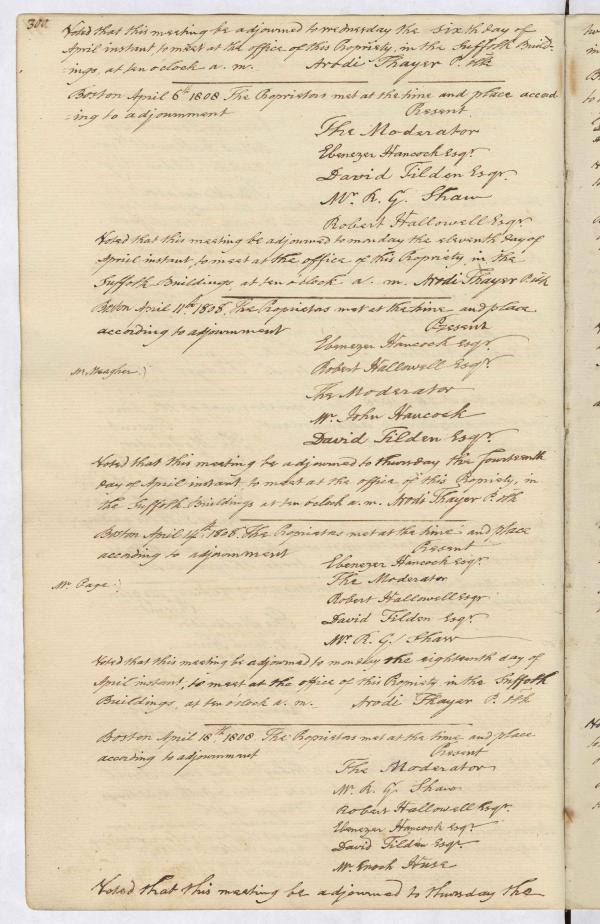 300.
Voted that this meeting be adjourned to wednesday the sixth day of
April instant to meet at the office of this Propriety, in the Suffolk Build-
ings, at ten oclock a. m. Arodi Thayer P. Clk
Boston April 6th 1808. The Proprietors met at the time and place accord
:ing to adjournment Present
The Moderator
Ebenezer Hancock Esqr.
David Tilden Esqr.
Mr. R. G. Shaw
Robert Hallowell Esqr.
Voted that this meeting be adjourned to monday the eleventh day of
April instant, to meet at the office of this Propriety, in the
Suffolk Buildings, at ten o'clock a. m. Arodi Thayer P. Clk
Boston April 11th 1808. The Proprietors met at the time and place
according to adjournment Present
Ebenezer Hancock Esqr.
Robert Hallowell Esqr.
Mr. Meagher:)
The Moderator
Mr. John Hancock
David Tilden Esqr.
Voted that this meeting be adjourned to thursday the fourteenth
day of April instant to meet at the office of this Propriety, in
the Suffolk Buildings at ten oclock a. m. Arodi Thayer P. Clk
Boston April 14th 1808. The Proprietors met at the time and place
according to adjournment Present
Ebenezer Hancock Esqr.
Mr. Page:)
The Moderator
Robert Hallowell Esqr
David Tilden Esqr.
Mr. R. G. Shaw
Voted that this meeting be adjourned to monday the eighteenth day of
April instant, to meet at the office of this Propriety in the Suffolk
Buildings, at ten o'clock a. m. Arodi Thayer P. Clk
Boston April 18th 1808. The Proprietors met at the time and place
according to adjournment Present
The Moderator
Mr. R. G. Shaw
Robert Hallowell Esqr.
Ebenezer Hancock Esqr
David Tilden Esqr.
Mr. Enoch Huse
Voted that this meeting be adjourned to thursday the